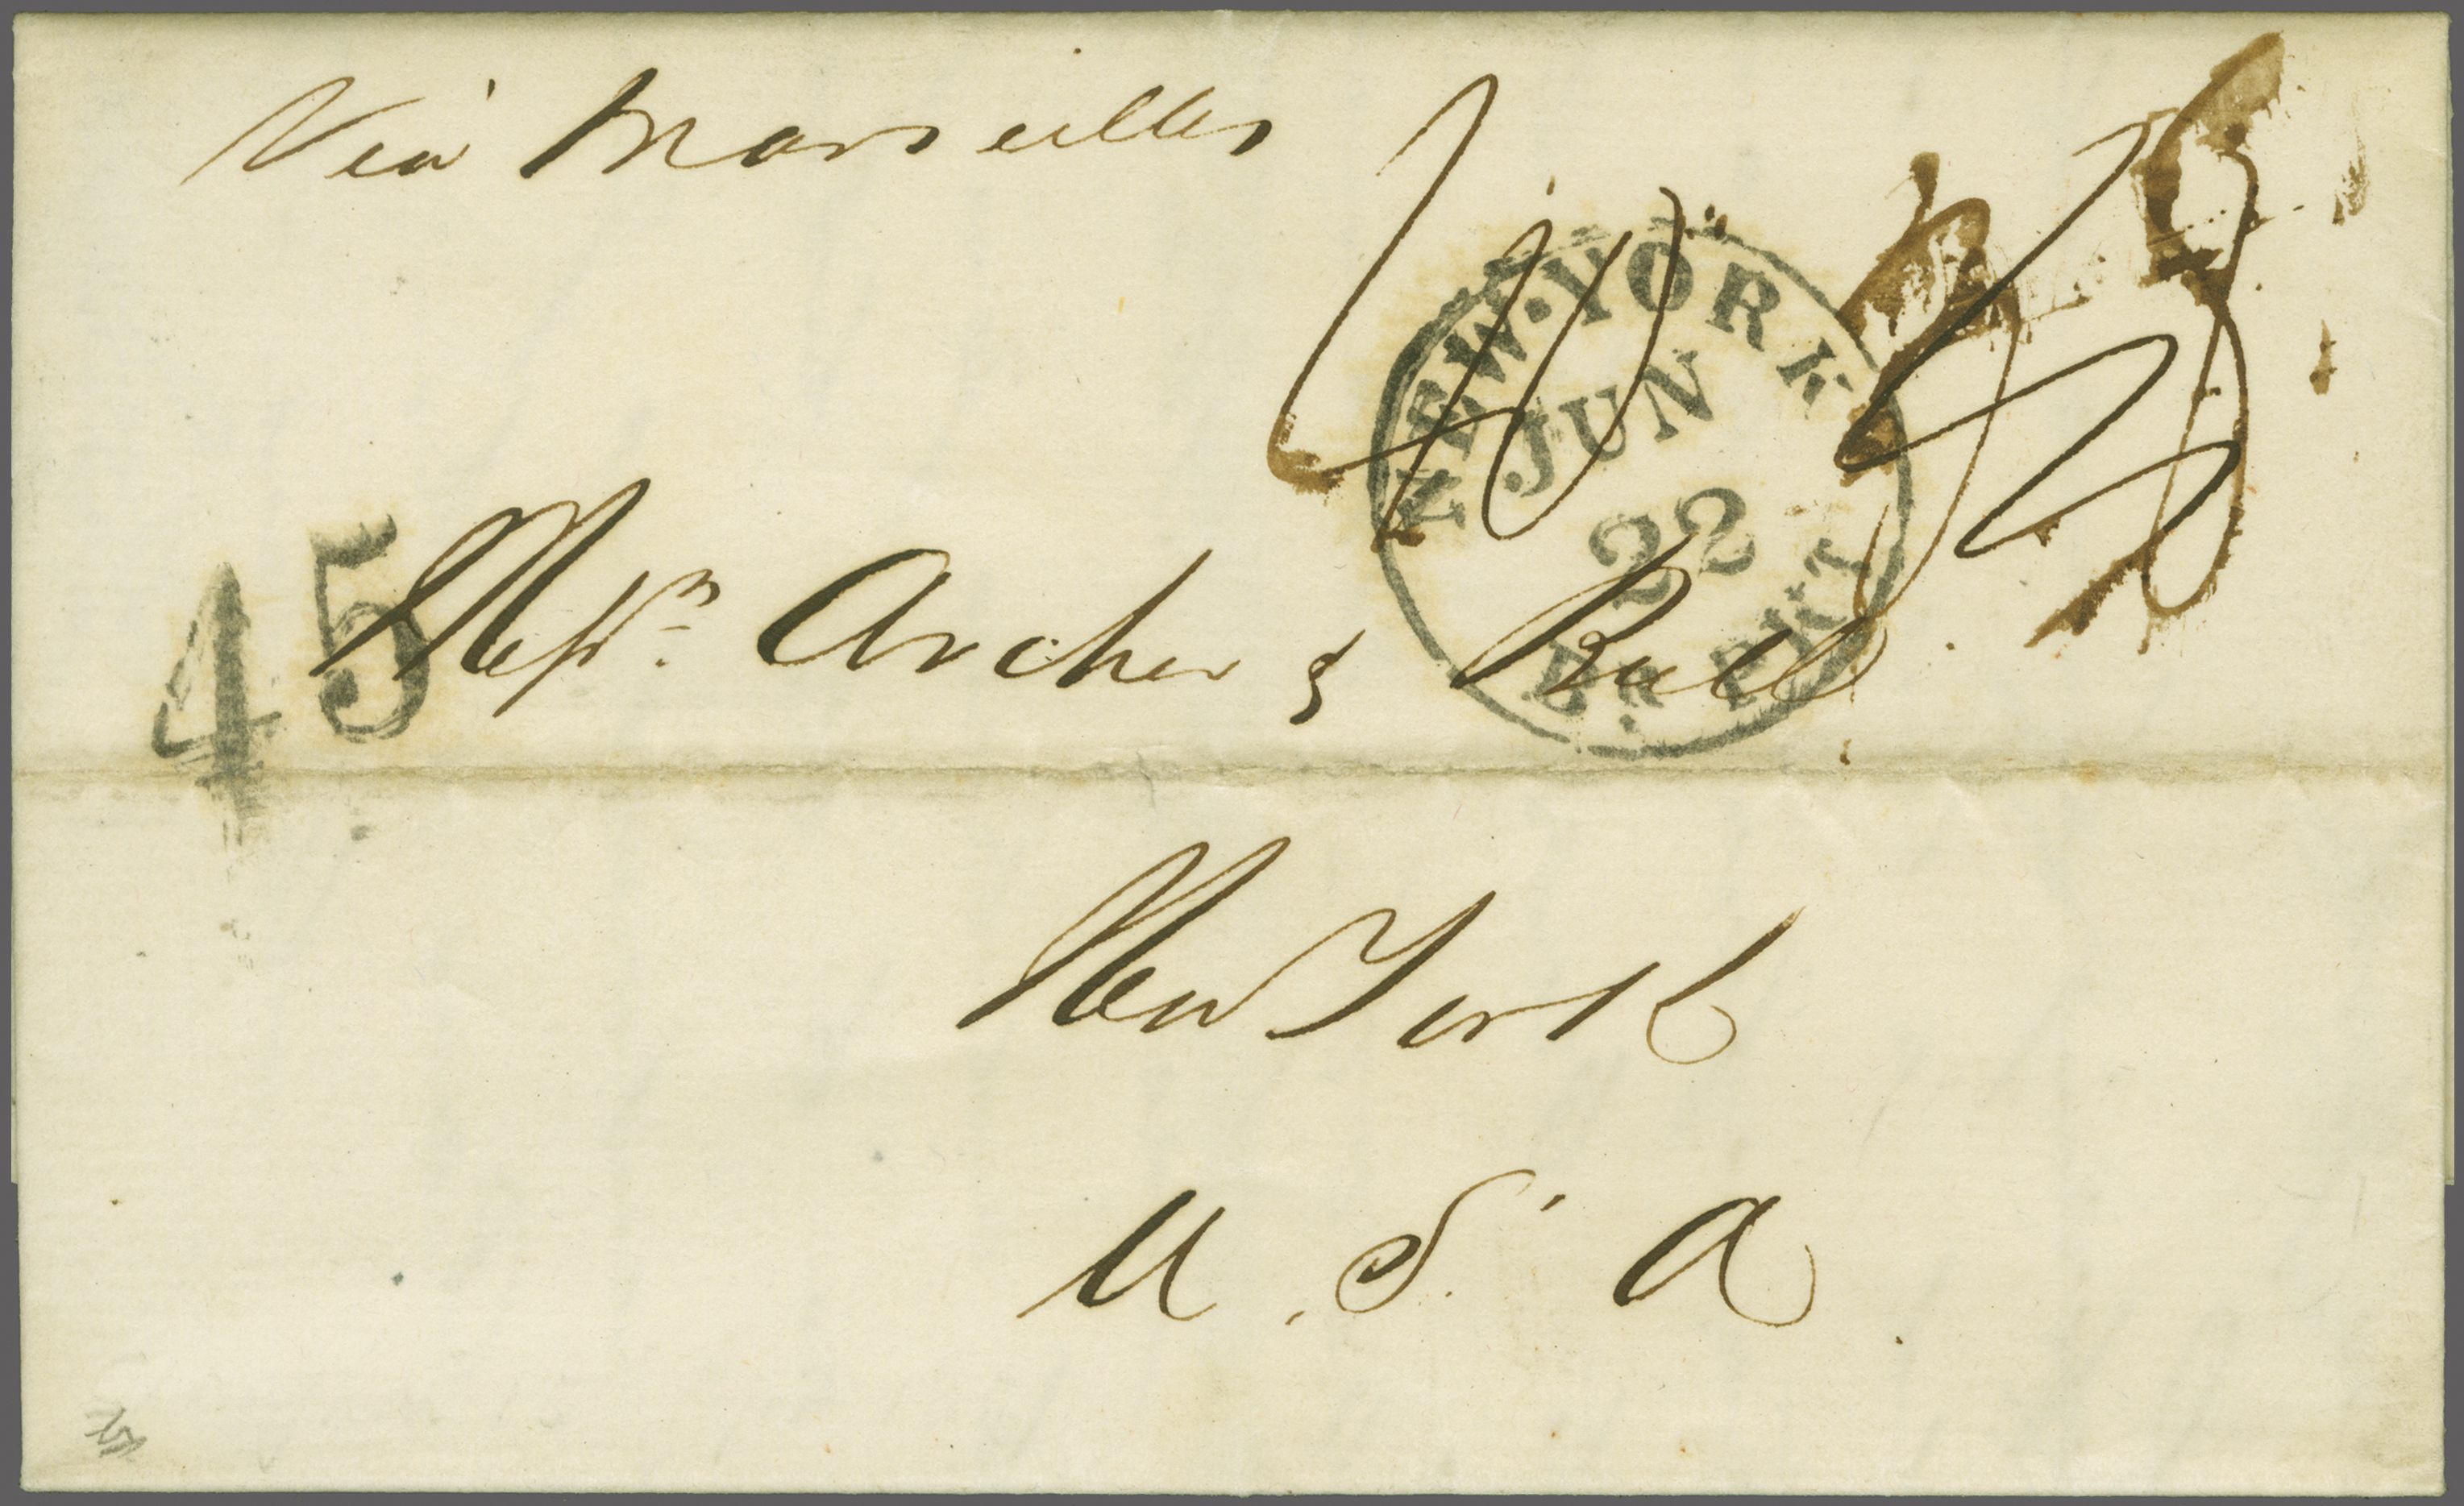 Via Marseilles
NEW·YORK
JUN
22
Br PKT
45
Messrs. Archer & Bull
New York
U.S.A.